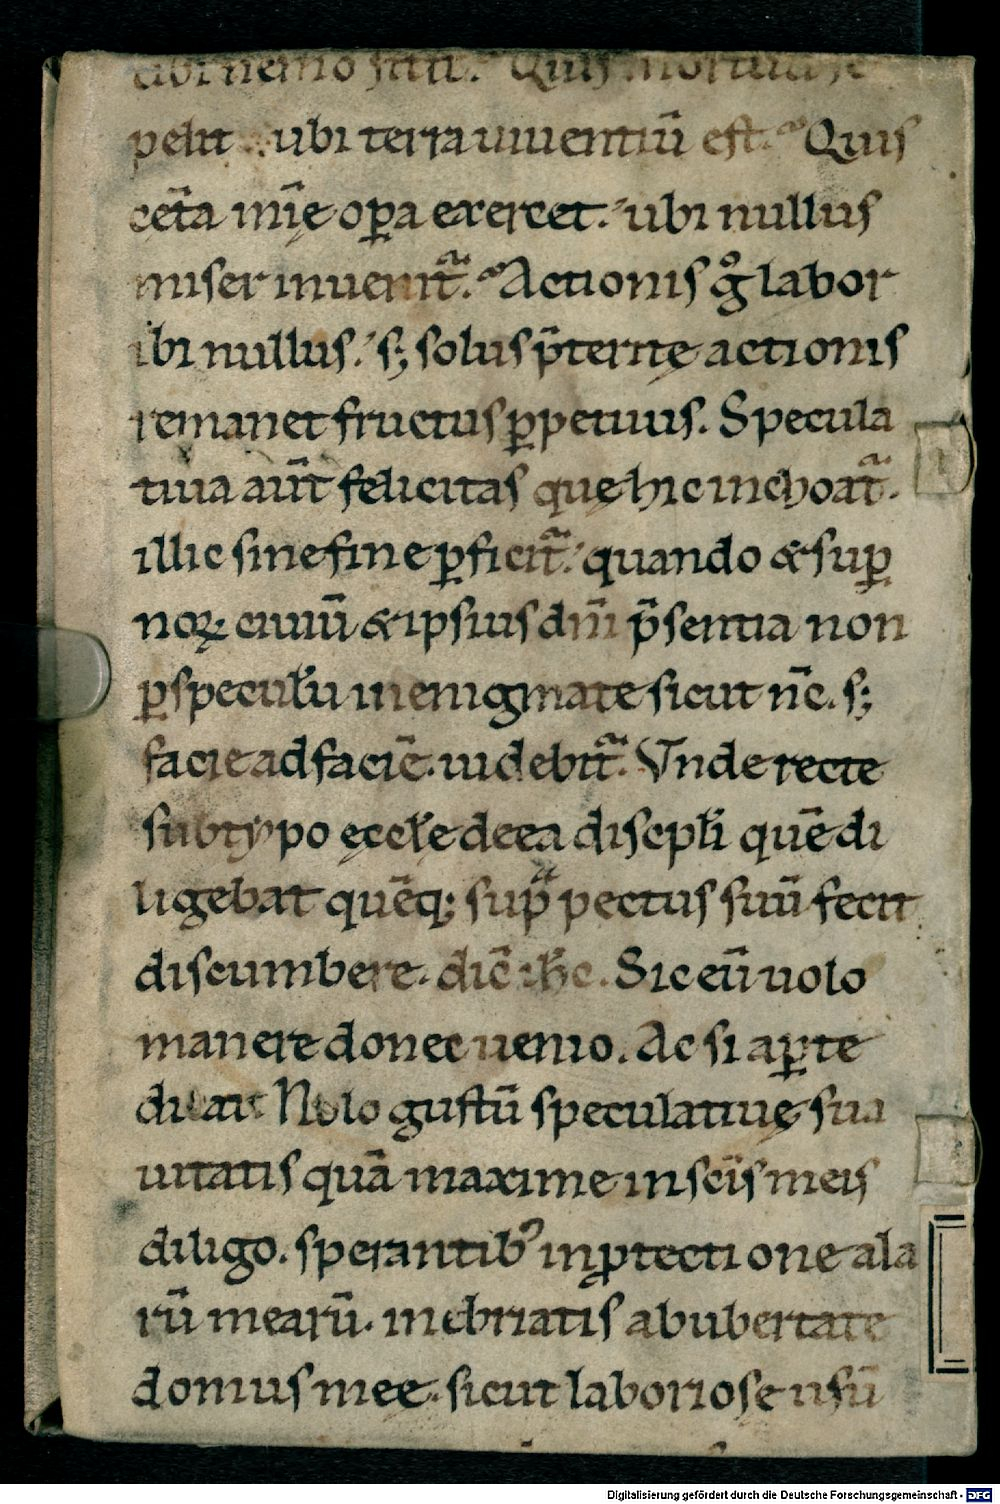 ubi nemo sitit. Quis mortuos se
pelit ubi terra uiuentiū est. Quis
cęt̄a mīę oꝑa exercet. ubi nullus
miser inuenit̄. Actionis gͦ labor
ibi nullus. s; solus p̄teritę actionis
remanet fructus ꝑpetuus. Specula
tiua aūt felicitas quę hic inchoat̄.
illic sine fine ꝑficit̄. quando & suꝑ
noꝝ ciuiū & ipsius dn̄i p̄sentia non
ꝑ specul̄u in enigmate sicut nc̄. s;
facie ad faciē. uidebit̄. Vnde recte
sub typo ęccl̄ę de ea discipl̄i quē di
ligebat quēq; sup̄ pectus suū fecit
discumbere. dic̄ ih̄c. Sic eū uolo
manere donec uenio. Ac si aꝑte
dicat Nolo gustū speculatiuę sua
uitatis quā maxime in sc̄is meis
diligo. sperantibꝰ in ꝓtectione ala
rū mearū. inebriatis ab ubertate
domus meę. sicut laboriosę usū
Digitalisierung gefördert durch die Deutsche Forschungsgemeinschaft - DFG